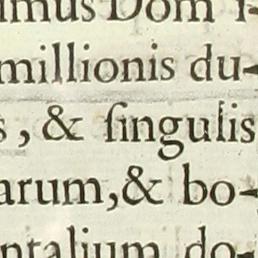 imus Dom
millionis du-
s, & ſingulis
arum, & bo-
ntalium do-